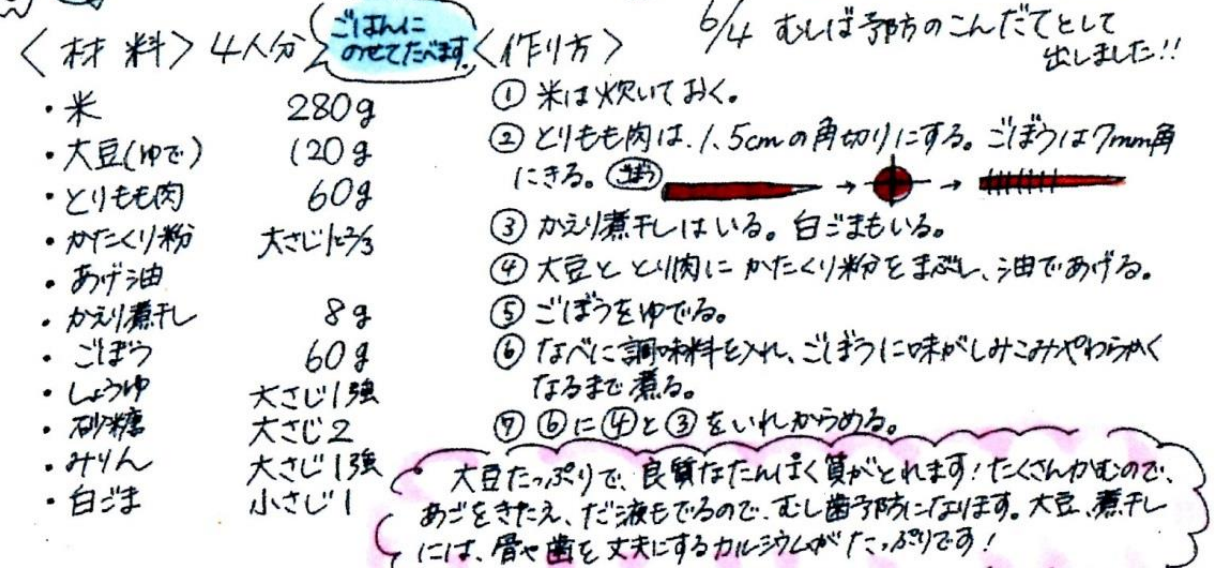 6/4 むしば予防のこんだてとして
出しました!!
<材料> 4人分
ごはんに
のせてたべます。
・米 280g
・大豆(ゆで) 120g
・とりもも肉 60g
・かたくり粉 大さじ1と2/3
・あげ油
・かえり煮干し 8g
・ごぼう 60g
・しょうゆ 大さじ1強
・砂糖 大さじ2
・みりん 大さじ1強
・白ごま 小さじ1
<作り方>
① 米は炊いておく。
② とりもも肉は、1.5cmの角切りにする。ごぼうは7mm角
にきる。 ごぼう → →
③ かえり煮干しはいる。白ごまもいる。
④ 大豆ととり肉にかたくり粉をまぶし、油であげる。
⑤ ごぼうをゆでる。
⑥ なべに調味料を入れ、ごぼうに味がしみこみやわらかく
なるまで煮る。
⑦ ⑥に④と③をいれからめる。
大豆たっぷりで、良質なたんぱく質がとれます!たくさんかむので、
あごをきたえ、だ液もでるので、むし歯予防になります。大豆、煮干し
には、骨や歯を丈夫にするカルシウムがたっぷりです!